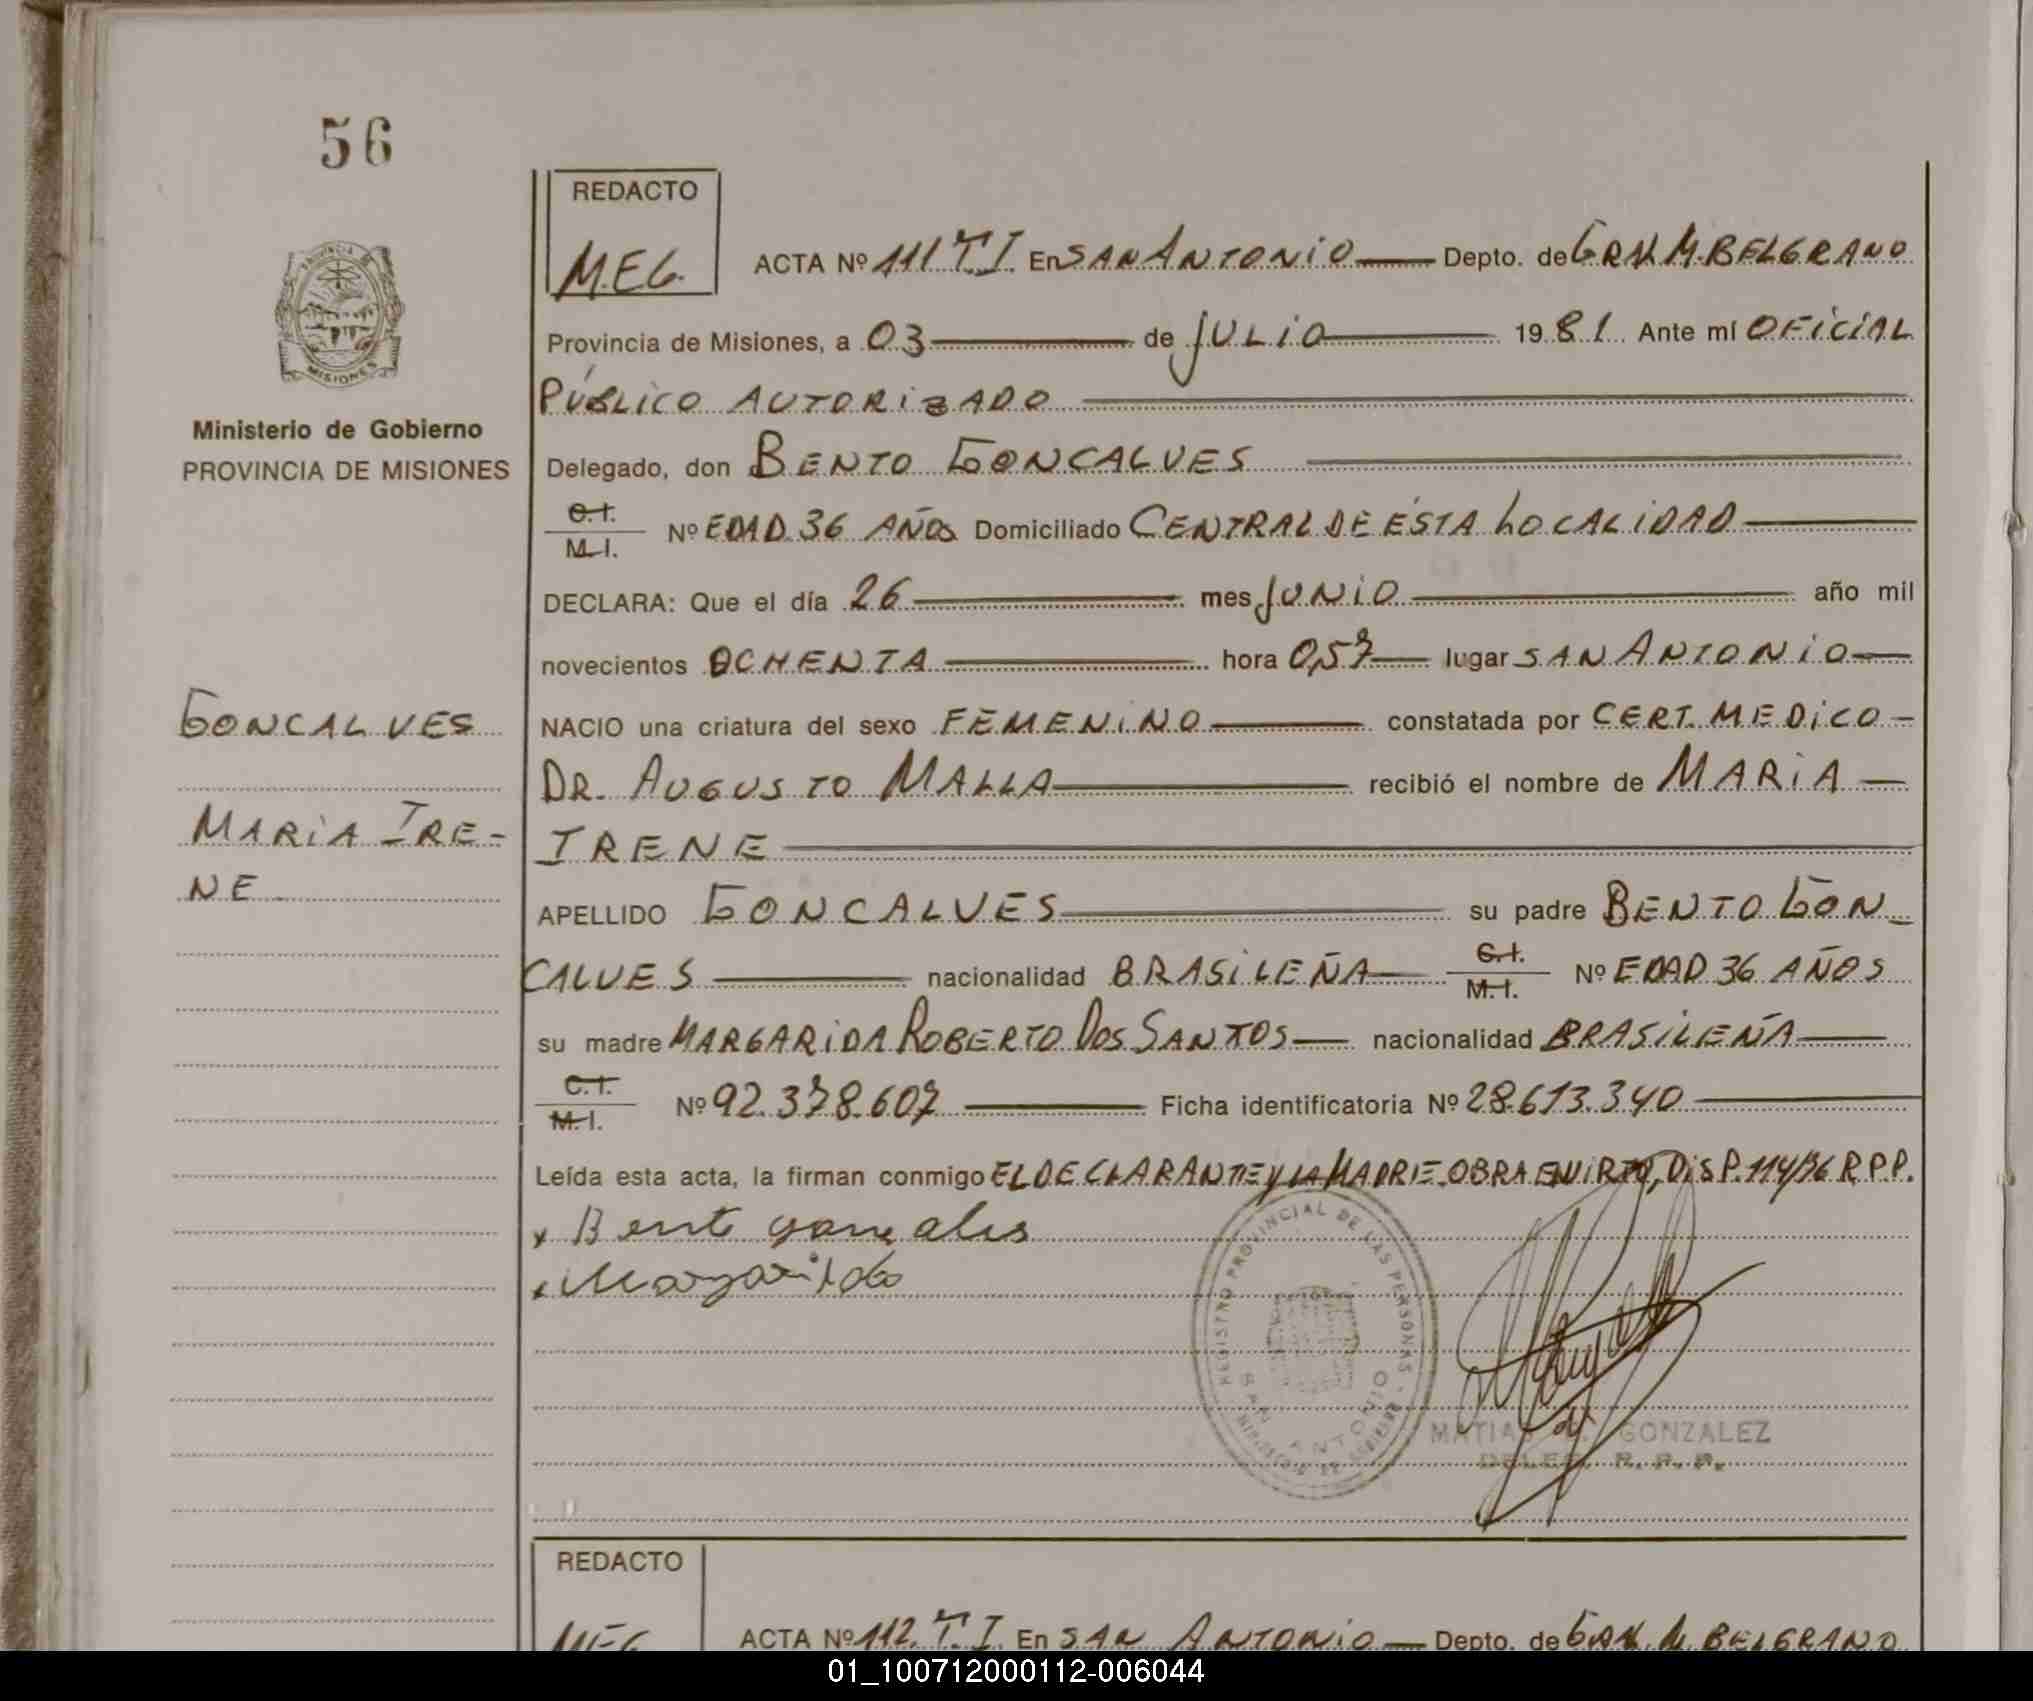 56
REDACTO
M.E.G.
ACTA Nº 111 T I En SAN ANTONIO Depto. de GRAL M. BELGRANO
Provincia de Misiones, a 03 de JULIO 1981 Ante mí OFICIAL
PÚBLICO AUTORIZADO
PROVINCIA DE
MISIONES
Ministerio de Gobierno
PROVINCIA DE MISIONES
Delegado, don BENTO GONCALVES
C.I. M.I. Nº EDAD 36 AÑOS Domiciliado CENTRAL DE ÉSTA LOCALIDAD
DECLARA: Que el día 26 mes JUNIO año mil
novecientos OCHENTA hora 0,57 lugar SAN ANTONIO
GONCALVES
NACIO una criatura del sexo FEMENINO constatada por CERT. MEDICO
DR. AUGUSTO MALLA recibió el nombre de MARIA
MARIA IRE-
NE
IRENE
APELLIDO GONCALVES su padre BENTO GON
CALVES nacionalidad BRASILEÑA C.I. M.I. Nº EDAD 36 AÑOS
su madre MARGARIDA ROBERTO DOS SANTOS nacionalidad BRASILEÑA
C.I. M.I. Nº 92.378.607 Ficha identificatoria Nº 28.613.340
Leída esta acta, la firman conmigo EL DECLARANTE Y LA MADRE. OBRA EN VIRTO, DISP. 114/36 R.P.P.
x Bento
x Margarida
REGISTRO PROVINCIAL DE LAS PERSONAS
SAN ANTONIO
MINISTERIO DE GOBIERNO
MATIAS GONZALEZ
DELEG. R. P. P.
REDACTO
MEG
ACTA Nº 112 T. I En SAN ANTONIO Depto. de GRAL M BELGRANO
01_100712000112-006044